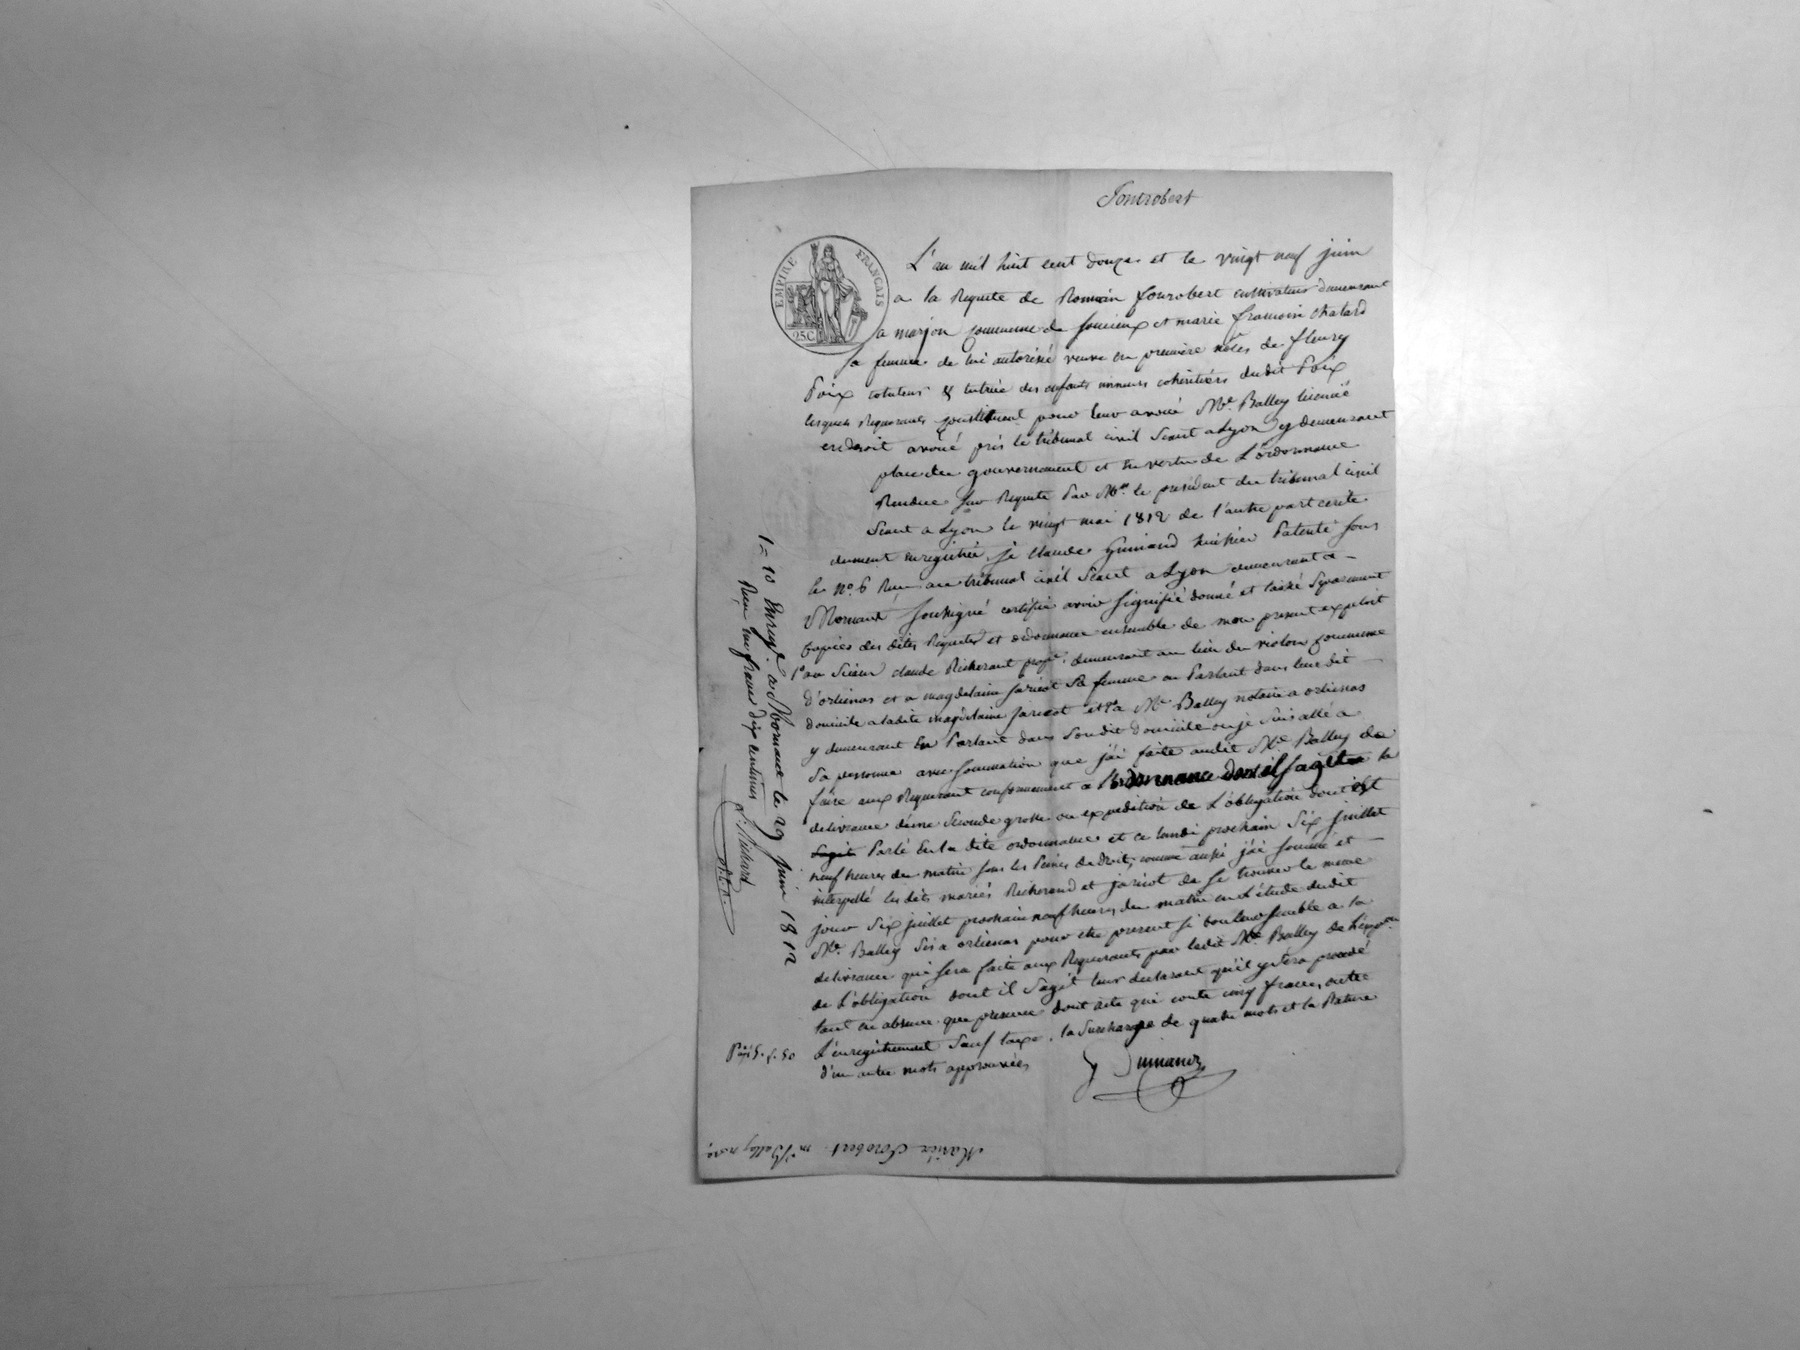 Fontrobert
EMPIRE FRANÇAIS
25C
L'an mil huit cent douze et le vingt neuf juin
a la Requete de Romain fonrobert cultivateur demeurant
a marjon commune de soucieux et marie francoise chatard
sa femme de lui autorisée veuve en première nôces de fleury
Poix cotuteur & tutrice des enfants mineurs cohéritiers dudit Poix
lesquels Requerants constituent pour leur avoué Me. Balley licencié
en droit avoué près le tribunal civil Seant a Lyon y demeurant
place du gouvernement et en vertu de L'ordonnance
Rendue sur Requete Par Mr. le president du tribunal civil
Seant a Lyon le vingt mai 1812 de l'autre part ecrite
dument enregistrée, je claude Guinand huissier Patenté sous
le No. 6 Reçu au tribunal civil Seant a Lyon demeurant a
Mornant soussigné certifie avoir signifié donné et laissé Separement
copies des dites Requetes et ordonnance ensemble de mon present exploit
1o au Sieur claude Richerant propre. demeurant au lieu du violon commune
d'orlienas et a magdelaine jaricot Sa femme en Parlant dans leur dit
domicile a ladite magdelaine jaricot et 2o a Me Balley notaire a orlienas
y demeurant En Parlant dans Son dit Domicile ou je Suis allé a
Sa personne avec Sommation que j'ai faite audit Me. Balley de
faire aux Requerant conformement a l'ordonnance dont il s'agit la
delivrance d'une Seconde grosse ou expedition de L'obligation dont est
Parlé En la dite ordonnance et ce lundi prochain Six juillet
neuf heures du matin sous les Peines de droit, comme aussi j'ai sommé et
interpellé les dits mariés Richerand et jaricot de se trouver le meme
jour Six juillet prochain neuf heures du matin en L'étude dudit
Me. Balley Sis a orlienas pour etre present si bon leur semble a la
delivrance qui sera faite aux Requerants par ledit Me Balley de
de L'obligation dont il S'agit leur declarant qu'il y sera procedé
tant en absence que presence dont acte qui coute cinq francs outre
L'enregistrement Sauf taxe. la Surcharge de quatre mots et la Rature
d'un autre mots approuvées
Guinand
1 = 10 Enregé. a Mornant le 29 juin 1812
Reçu un franc dix centimes
Marier Forobert me Balley nore.